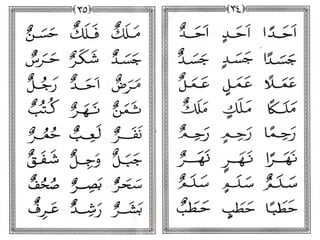 (٣٤)
اَحَدًا اَحَدٍ اَحَدٌ
جَسَدًا جَسَدٍ جَسَدٌ
عَمَلًا عَمَلٍ عَمَلٌ
مَلَكًا مَلَكٍ مَلَكٌ
رَحِمًا رَحِمٍ رَحِمٌ
نَهَرًا نَهَرٍ نَهَرٌ
سَلَمٌ سَلَمٍ سَلَمٌ
حَطَبًا حَطَبٍ حَطَبٌ
(٣٥)
مَلَكٌ فَلَكٌ حَسَنٌ
جَسَدٌ شَكَرٌ حَرَسٌ
مَرَضٌ اَحَدٌ رَجُلٌ
ثَمَنٌ نَهَرٌ كُتُبٌ
نَفَرٌ لَعِبٌ حُمُرٌ
جَبَلٌ وَجِلٌ شَفَقٌ
سَحَرٌ بَصِرٌ صُحُفٌ
بَشَرٌ رَشِدٌ عَرِفٌ